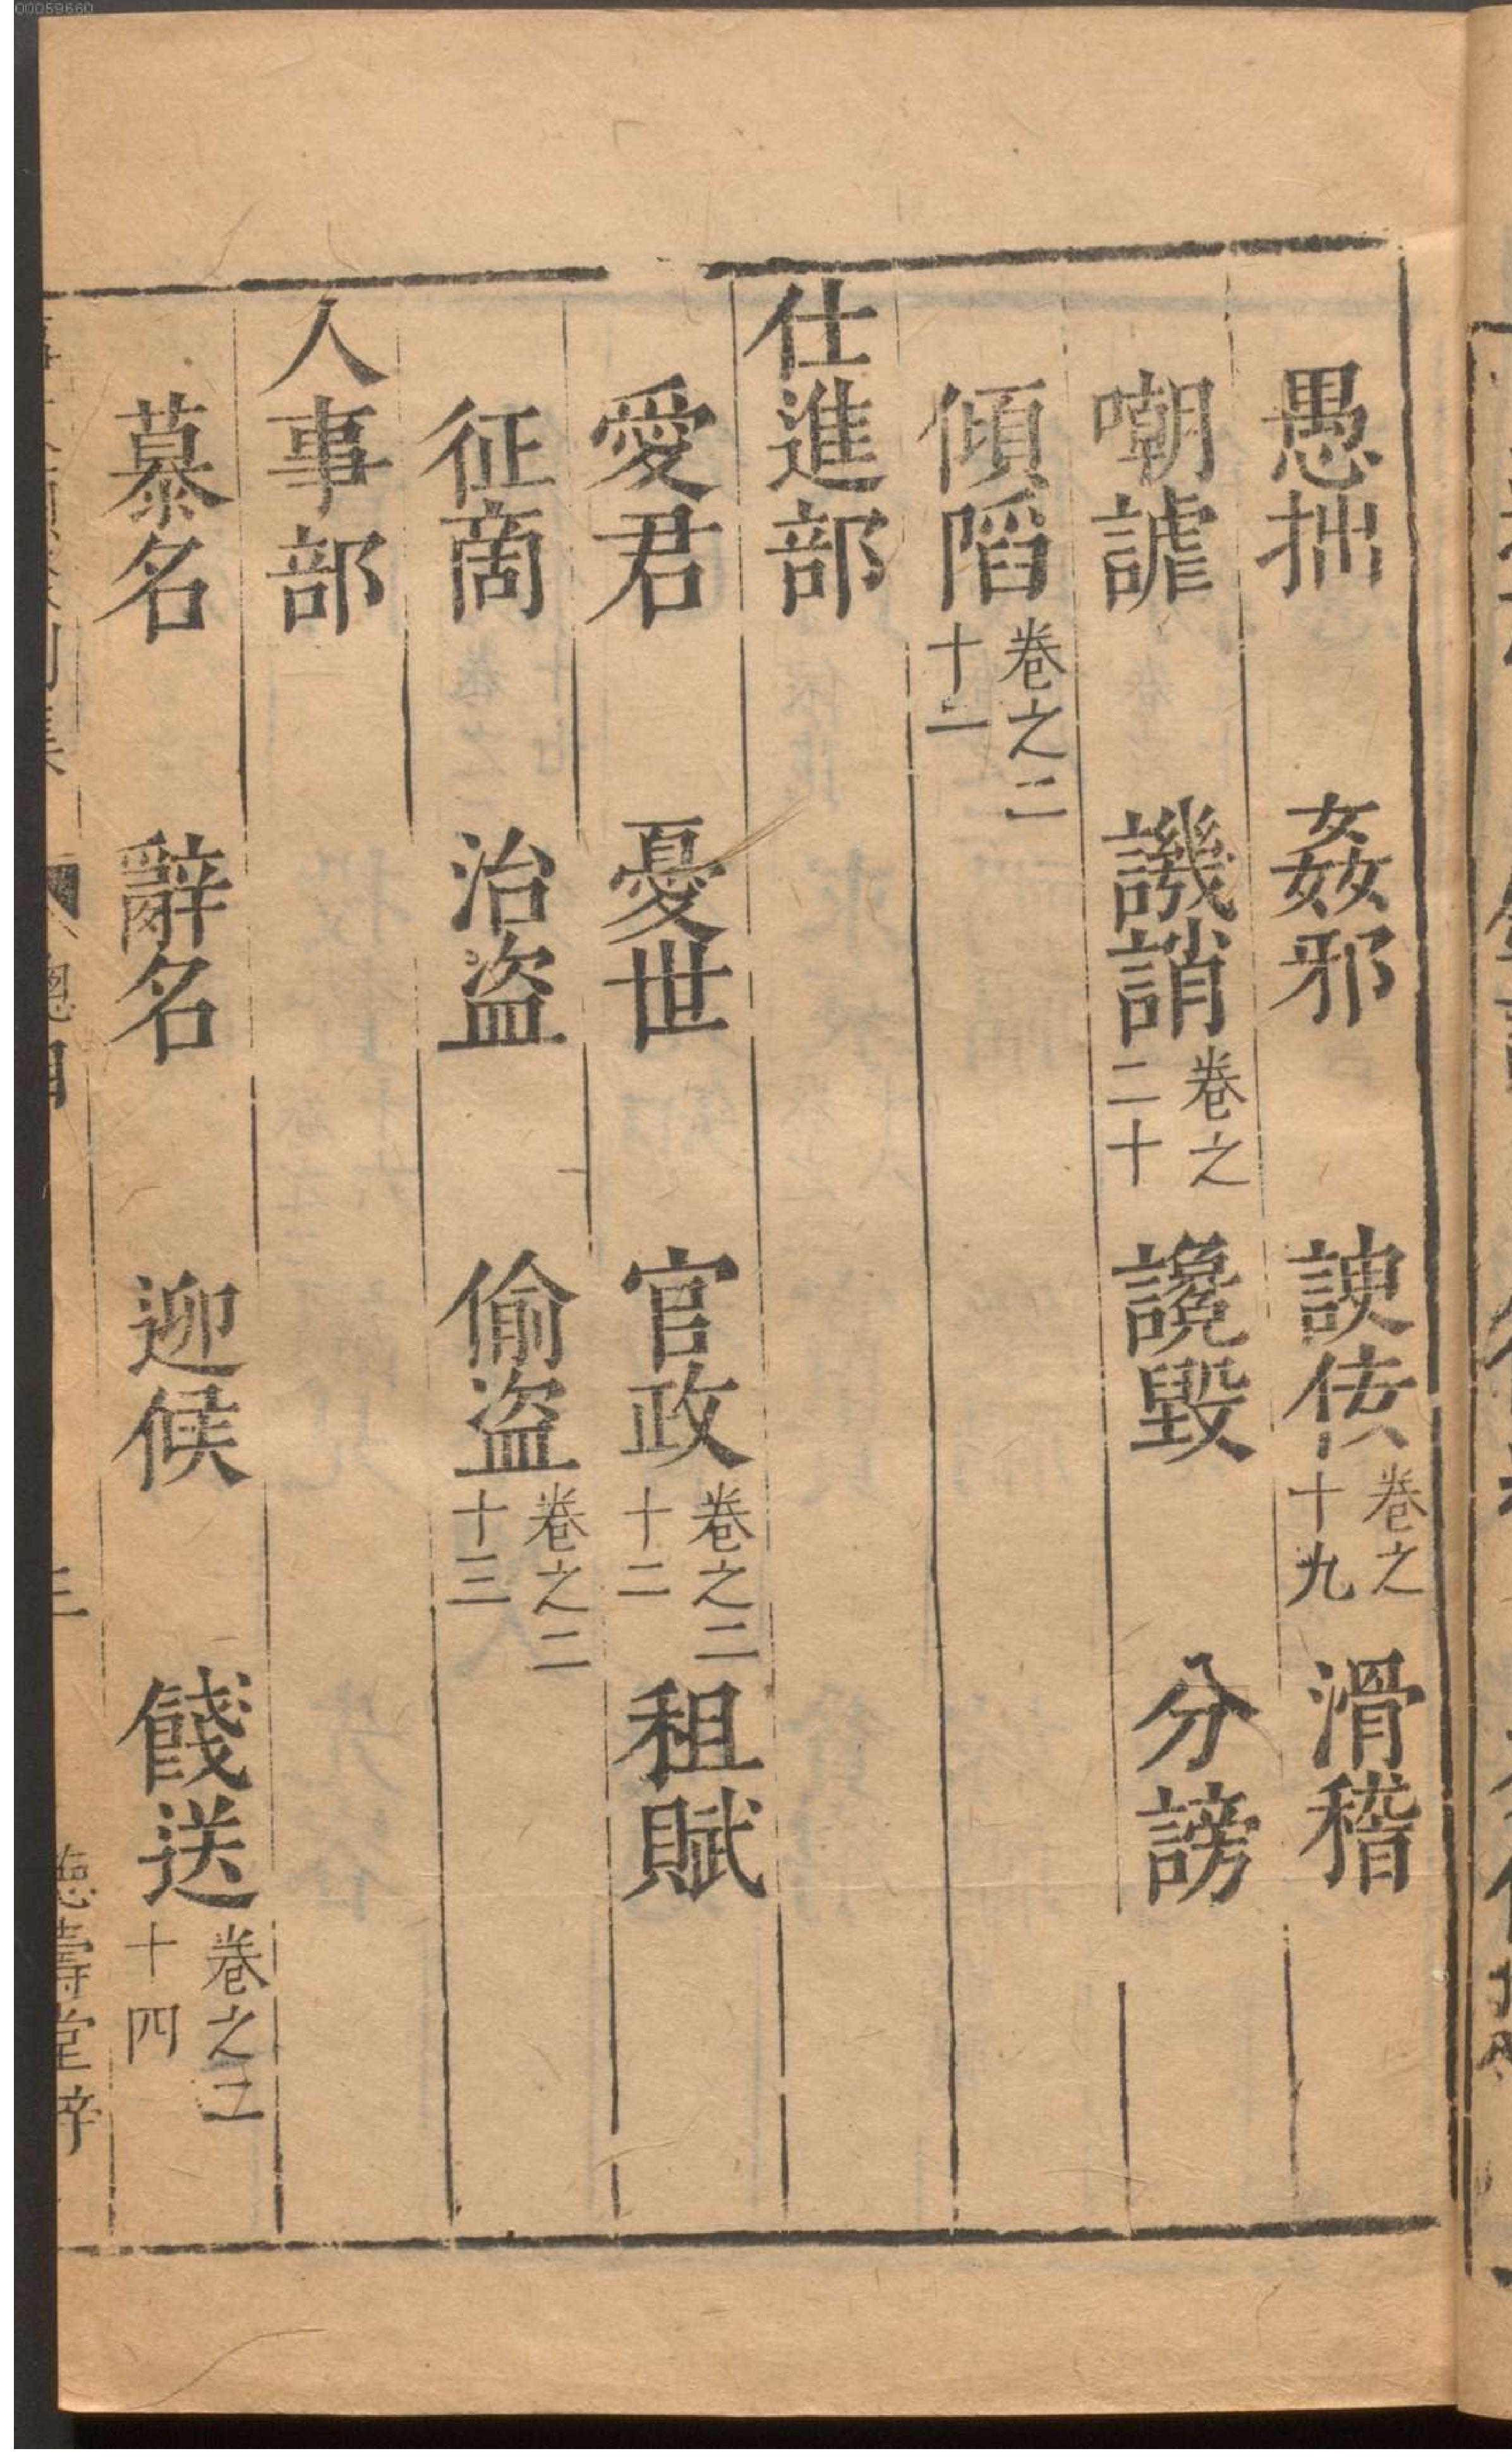 愚拙 姦邪 諛佞卷之十九 滑稽
嘲謔 譏誚卷之二十 讒毀 分謗
傾陷卷之二十一
仕進部
愛君 憂世 官政卷之二十二 租賦
征商 治盜 偷盜卷之二十三
人事部
慕名 辭名 迎候 餞送卷之二十四
總目
三
德壽堂梓
00059660